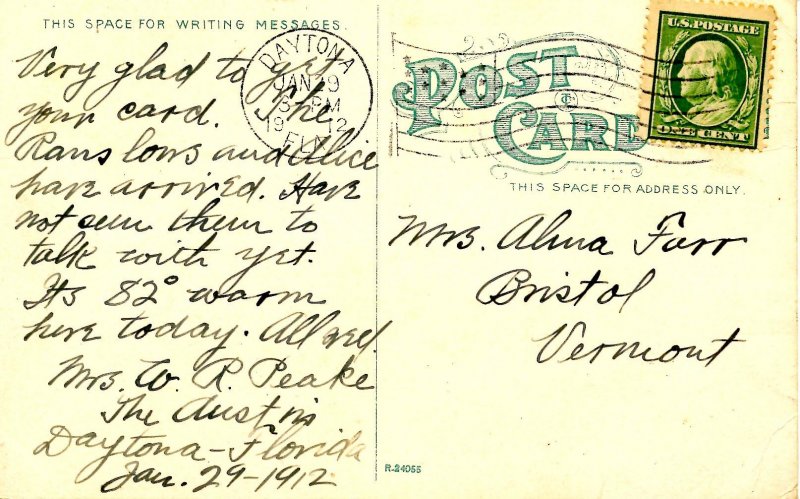 THIS SPACE FOR WRITING MESSAGES.
Very glad to get
your card. The
Ranslows and Alice
have arrived. Have
not seen them to
talk with yet.
Its 82° warm
here today. All well
Mrs. W. R. Peake
The Austin
Daytona-Florida
Jan. 29-1912
DAYTONA
JAN 29
PM
1912
FLA.
POST
CARD
U.S. POSTAGE
ONE CENT
THIS SPACE FOR ADDRESS ONLY.
Mrs. Alma Farr
Bristol
Vermont
R-24055